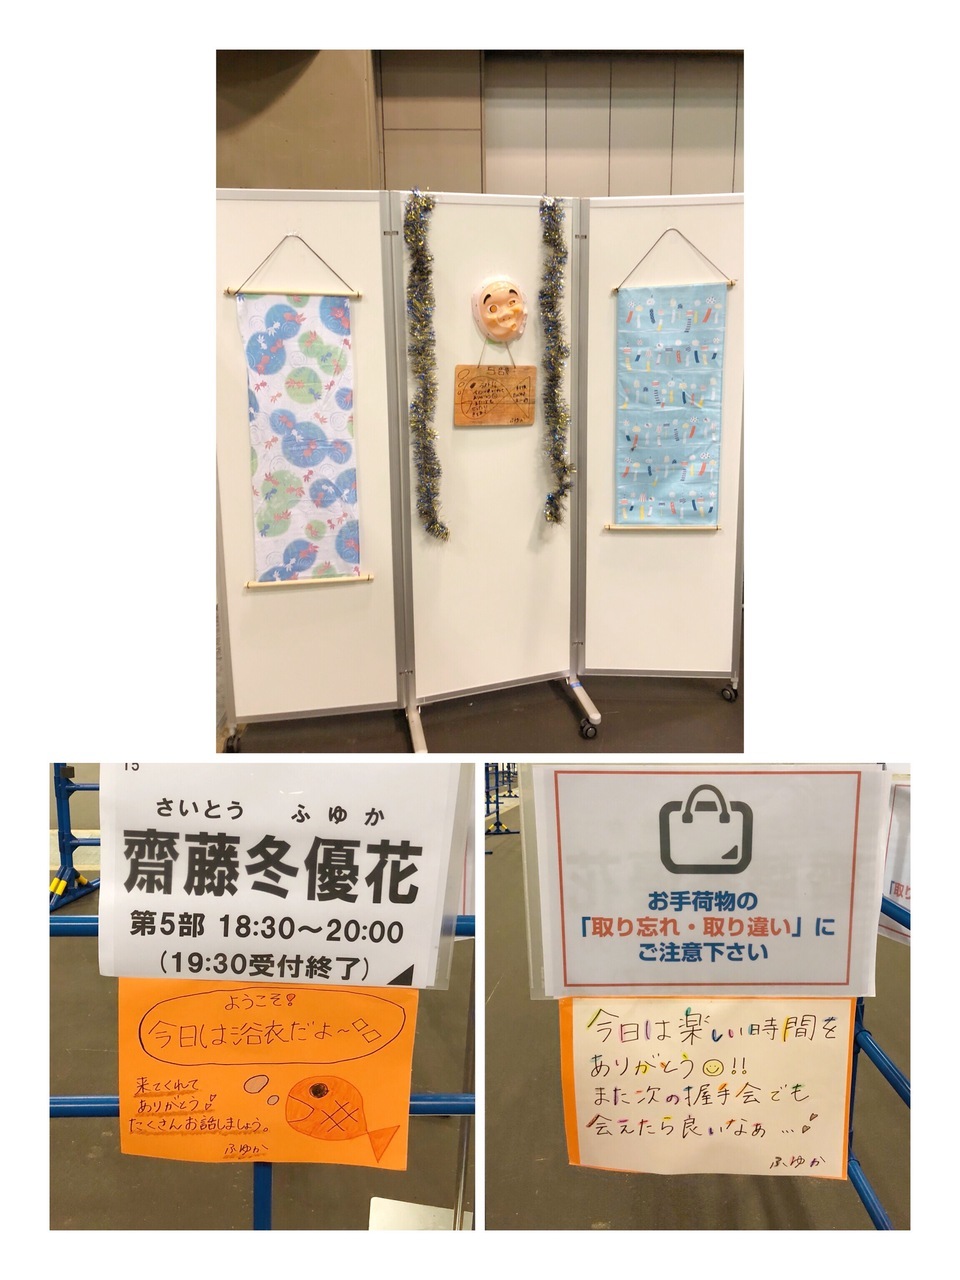 5部
15
さいとう ふゆか
齋藤冬優花
第5部 18:30〜20:00
(19:30受付終了)
ようこそ!
今日は浴衣だよ〜
来てくれて
ありがとう
たくさんお話しましょう。
ふゆか
お手荷物の
「取り忘れ・取り違い」に
ご注意下さい
今日は楽しい時間を
ありがとう!!
また次の握手会でも
会えたら良いなぁ…
ふゆか